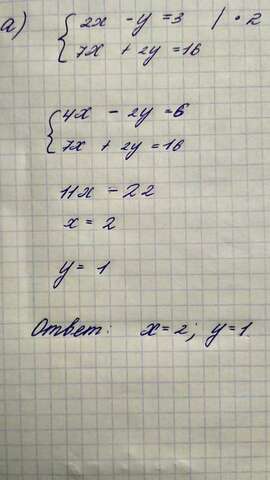 а) { 2x - y = 3 | · 2
7x + 2y = 16
{ 4x - 2y = 6
7x + 2y = 16
11x - 22
x = 2
y = 1
Ответ: x = 2; y = 1